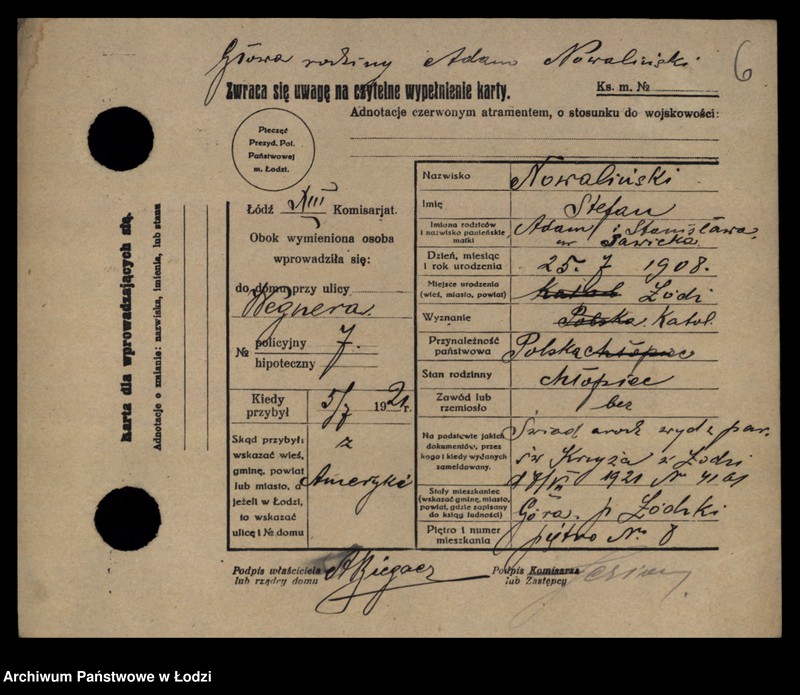 Głowa rodziny Adam Nowaliński
6
Zwraca się uwagę na czytelne wypełnienie karty.
Ks. m. №
Adnotacje czerwonym atramentem, o stosunku do wojskowości:
Pieczęć
Prezyd. Pol.
Państwowej
m. Łodzi.
Karta dla wprowadzających się.
Adnotacje o zmianie: nazwiska, imienia, lub stanu
Łódź XIII Komisarjat.
Obok wymieniona osoba
wprowadziła się:
do domu przy ulicy
Wegnera
№ policyjny 7.
hipoteczny
Kiedy przybył 5/7 1921 r.
Skąd przybył:
wskazać wieś,
gminę, powiat
lub miasto, a
jeżeli w Łodzi,
to wskazać
ulicę i № domu
z
Ameryki
Nazwisko Nowaliński
Imię Stefan
Imiona rodziców
i nazwisko panieńskie
matki
Adam i Stanisława
ur Sawicka
Dzień, miesiąc
i rok urodzenia
25. 7 1908.
Miejsce urodzenia
(wieś, miasto, powiat)
Katol Łódź
Wyznanie Polska Katol.
Przynależność
państwowa
Polska chłopiec
Stan rodzinny chłopiec
Zawód lub
rzemiosło
bez
Na podstawie jakich
dokumentów, przez
kogo i kiedy wydanych
zameldowany.
Świad. urodz wyd z par.
św Krzyża w Łodzi
d 7/VI 1921 №
Stały mieszkaniec
(wskazać gminę, miasto,
powiat, gdzie zapisany
do ksiąg ludności)
Góra. p Łódzki
Piętro i numer
mieszkania
piętro № 8
Podpis właściciela
lub rządcy domu
ABiegacz
Podpis Komisarza
lub Zastępcy
Archiwum Państwowe w Łodzi